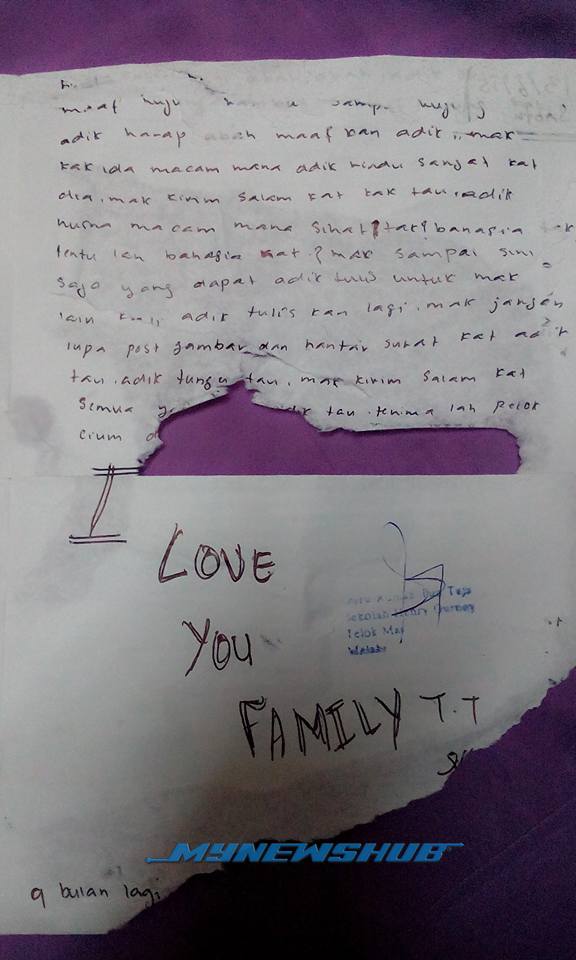 maaf
adik harap abah maaf kan adik ,, mak
kak ida macam mana adik rindu sangat kat
dia, mak kirim salam kat kak tau, adik
husna macam mana sihat tak? bahagia tak
tentu lah bahagia kat? mak sampai sini
saja yang dapat adik tulis untuk mak
lain kali adik tulis kan lagi, mak jangan
lupa post gambar dan hantar surat kat adik
tau, adik tunggu tau, mak kirim salam kat
semua tau, terima lah pelok
cium
I
LOVE
YOU
FAMILY T.T
Sekolah Henry Gurney
Telok Mas
Melaka
MYNEWSHUB
9 bulan lagi